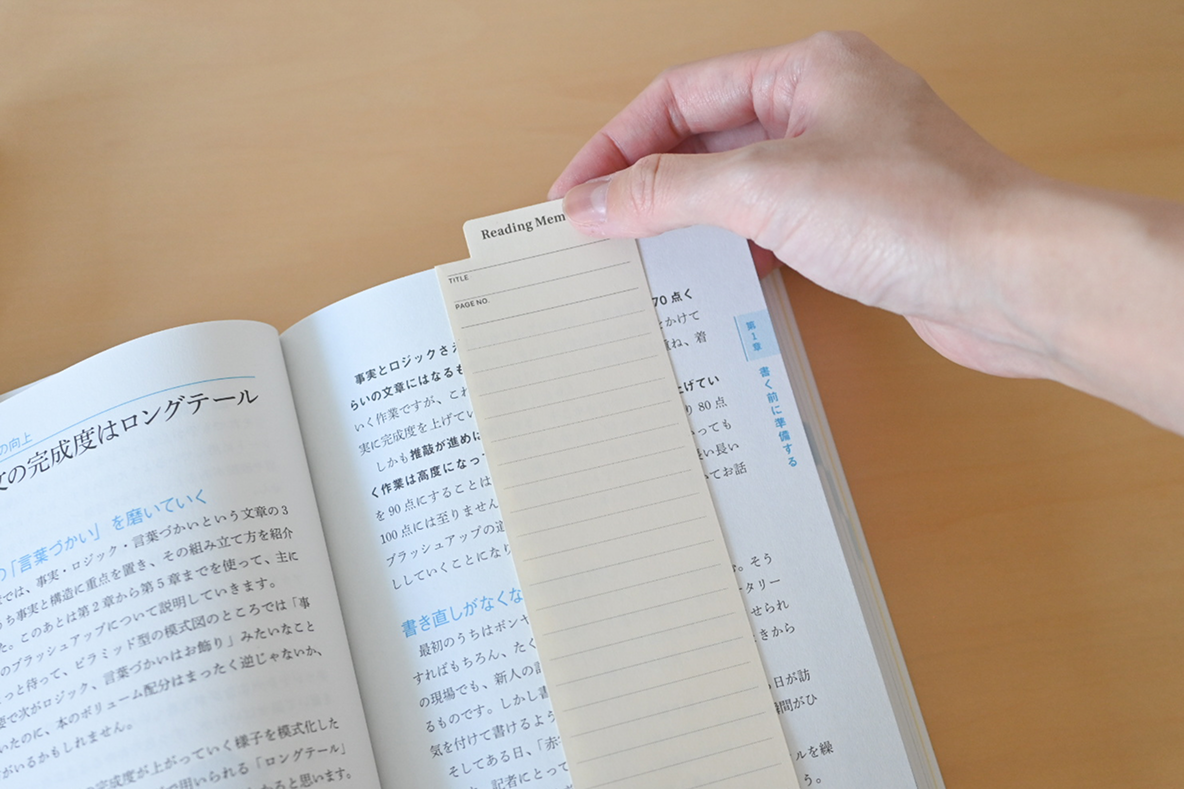 の向上
文の完成度はロングテール
の「言葉づかい」を磨いていく
では、事実・ロジック・言葉づかいという文章の3
ち事実と構造に重点を置き、その組み立て方を紹介
た。このあとは第2章から第5章までを使って、主に
のブラッシュアップについて説明していきます。
っと待って、ピラミッド型の模式図のところでは「事
要で次がロジック、言葉づかいはお飾り」みたいなこと
いたのに、本のボリューム配分はまったく逆じゃないか、
がいるかもしれません。
完成度が上がっていく様子を模式化した
で用いられる「ロングテール」
ると思います。
事実とロジックさえ
らいの文章にはなるも
いく作業ですが、これ
実に完成度を上げてい
しかも推敲が進めば
く作業は高度になって
を90点にすることは
100点には至りません
ブラッシュアップの道
ししていくことになり
書き直しがなくな
最初のうちはボンヤ
すればもちろん、たく
の現場でも、新人の記
るものです。しかし書
気を付けて書けるよう
そしてある日、「赤
記者にとって
Reading Mem
TITLE
PAGE NO.
70点く
とかけて
重ね、着
上げてい
り80点
いっても
長い長い
いてお話
。そう
タリー
せられ
ときから
日が訪
瞬間がひ
ルを繰
う。
第1章
書く前に準備する